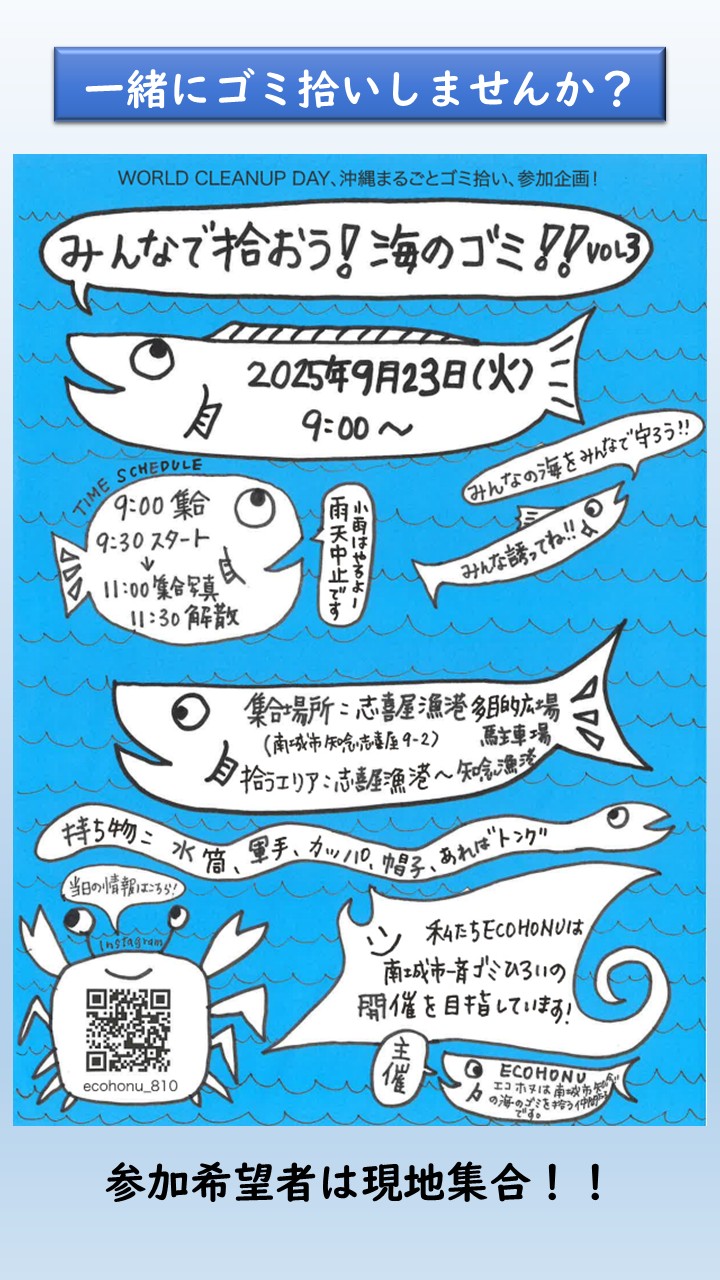 一緒にゴミ拾いしませんか？
WORLD CLEANUP DAY、沖縄まるごとゴミ拾い、参加企画！
みんなで拾おう！海のゴミ！！VOL3
2025年9月23日（火）
9:00〜
TIME SCHEDULE
9:00 集合
9:30 スタート
↓
11:00 集合写真
11:30 解散
小雨はやるよー
雨天中止です
みんなの海をみんなで守ろう!!
みんな誘ってね!!
集合場所：志喜屋漁港 多目的広場
（南城市知念志喜屋9-2）
駐車場
拾うエリア：志喜屋漁港〜知念漁港
持ち物：水筒、軍手、カッパ、帽子、あれば"トング"
当日の情報はこちら！
Instagram
ecohonu_810
私たちECOHONUは
南城市一斉ゴミひろいの
開催を目指しています！
主催
ECOHONU
エコホヌは南城市知念
の海のゴミを拾う仲間
です。
参加希望者は現地集合！！